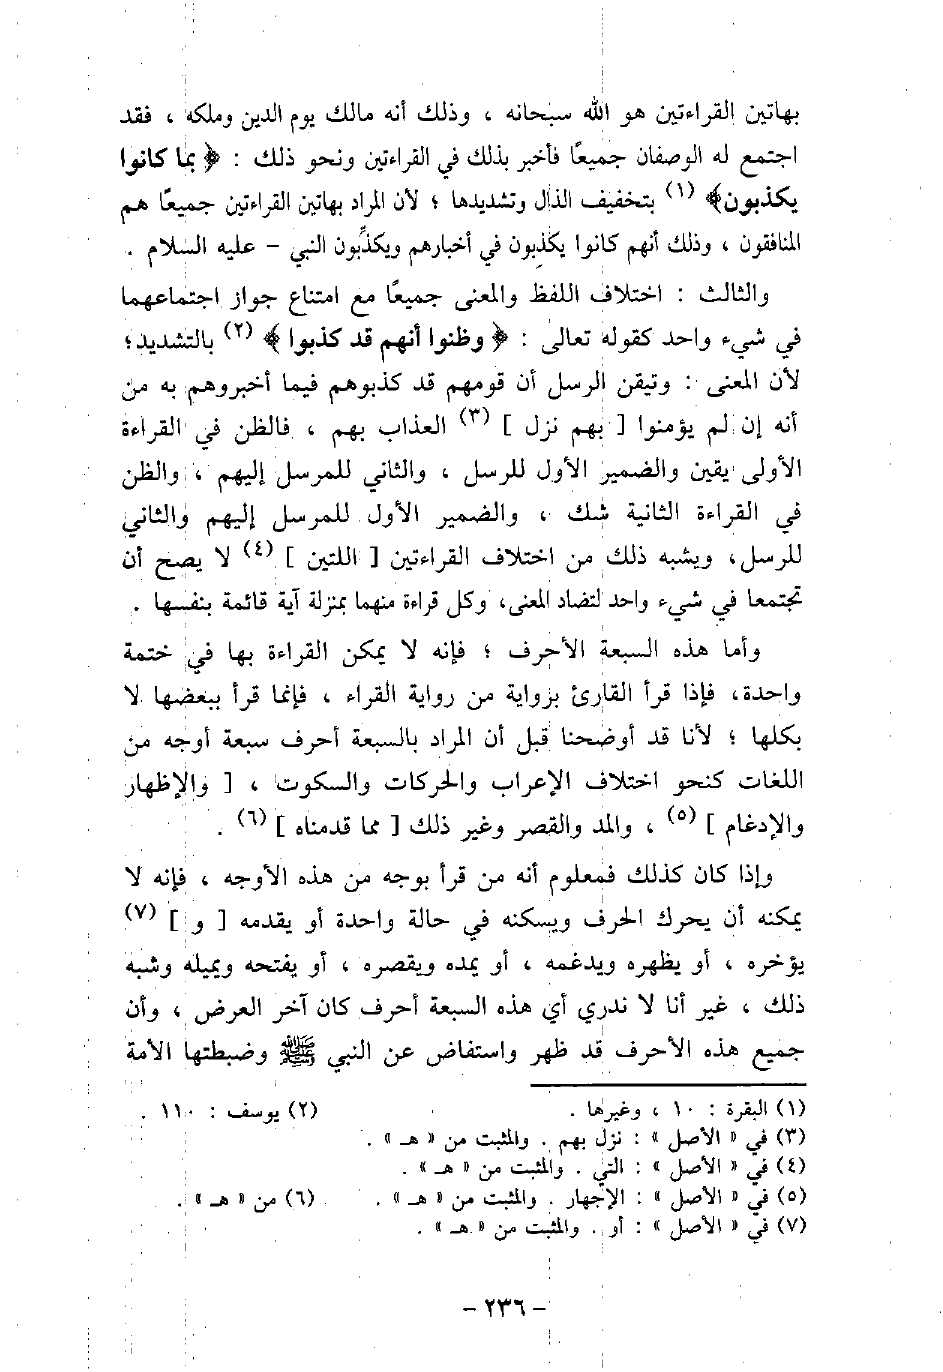 بهاتين القراءتين هو الله سبحانه ، وذلك أنه مالك يوم الدين وملكه ، فقد
اجتمع له الوصفان جميعًا فأخبر بذلك في القراءتين ونحو ذلك : ﴿ بما كانوا
يكذبون﴾ (١) بتخفيف الذال وتشديدها ؛ لأن المراد بهاتين القراءتين جميعًا هم
المنافقون ، وذلك أنهم كانوا يكْذِبون في أخبارهم ويكذِّبون النبي – عليه السلام .
والثالث : اختلاف اللفظ والمعنى جميعًا مع امتناع جواز اجتماعهما
في شيء واحد كقوله تعالى : ﴿ وظنوا أنهم قد كذبوا ﴾ (٢) بالتشديد؛
لأن المعنى : وتيقن الرسل أن قومهم قد كذبوهم فيما أخبروهم به من
أنه إن لم يؤمنوا [ بهم نزل ] (٣) العذاب بهم ، فالظن في القراءة
الأولى يقين والضمير الأول للرسل ، والثاني للمرسل إليهم ، والظن
في القراءة الثانية شك ، والضمير الأول للمرسل إليهم والثاني
للرسل، ويشبه ذلك من اختلاف القراءتين [ اللتين ] (٤) لا يصح أن
تجتمعا في شيء واحد لتضاد المعنى، وكل قراءة منهما بمنزلة آية قائمة بنفسها .
وأما هذه السبعة الأحرف ؛ فإنه لا يمكن القراءة بها في ختمة
واحدة، فإذا قرأ القارئ برواية من رواية القراء ، فإنما قرأ ببعضها لا
بكلها ؛ لأنا قد أوضحنا قبل أن المراد بالسبعة أحرف سبعة أوجه من
اللغات كنحو اختلاف الإعراب والحركات والسكوت ، [ والإظهار
والإدغام ] (٥) ، والمد والقصر وغير ذلك [ مما قدمناه ] (٦) .
وإذا كان كذلك فمعلوم أنه من قرأ بوجه من هذه الأوجه ، فإنه لا
يمكنه أن يحرك الحرف ويسكنه في حالة واحدة أو يقدمه [ و ] (٧)
يؤخره ، أو يظهره ويدغمه ، أو يمده ويقصره ، أو يفتحه ويميله وشبه
ذلك ، غير أنا لا ندري أي هذه السبعة أحرف كان آخر العرض ، وأن
جميع هذه الأحرف قد ظهر واستفاض عن النبي ﷺ وضبطتها الأمة
(١) البقرة : ١٠ ، وغيرها . (٢) يوسف : ١١٠ .
(٣) في « الأصل » : نزل بهم . والمثبت من « هـ » .
(٤) في « الأصل » : التي . والمثبت من « هـ » .
(٥) في « الأصل » : الإجهار . والمثبت من « هـ » . (٦) من « هـ » .
(٧) في « الأصل » : أو . والمثبت من « هـ » .
- ٢٣٦ -